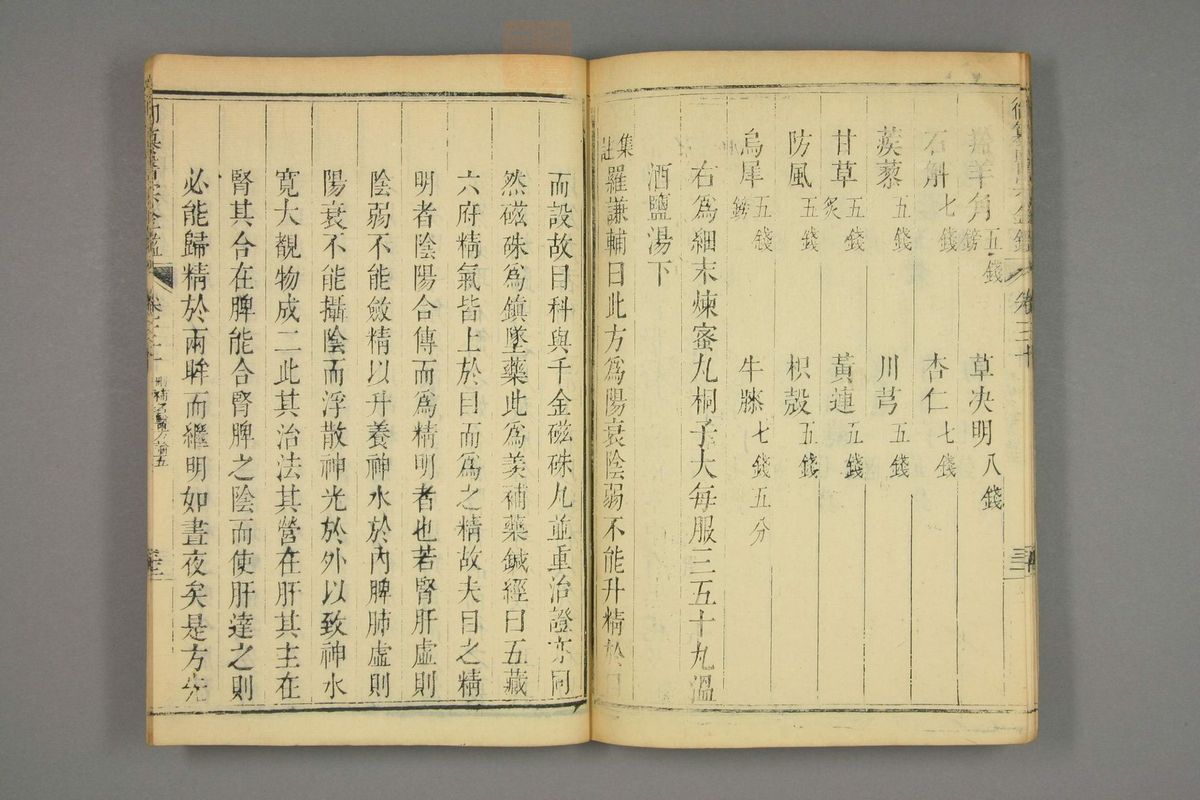 羚羊角五錢鎊 草决明八錢
石斛七錢 杏仁七錢
蒺藜五錢 川芎五錢
甘草五錢炙 黃連五錢
防風五錢 枳殼五錢
烏犀五錢鎊 牛膝七錢五分
右爲細末煉蜜丸桐子大每服三五十丸溫
酒鹽湯下
集註羅謙輔曰此方爲陽衰陰弱不能升精於目
而設故目科與千金磁硃丸並重治證亦同
然磁硃爲鎮墜藥此爲羡補藥鍼經曰五藏
六府精氣皆上於目而爲之精故夫目之精
明者陰陽合傳而爲精明者也若腎肝虛則
陰弱不能斂精以升養神水於內脾肺虛則
陽衰不能攝陰而浮散神光於外以致神水
寬大覩物成二此其治法其營在肝其主在
腎其合在脾能合腎脾之陰而使肝達之則
必能歸精於兩眸而繼明如晝夜矣是方先
卷三十
卷之三十 刪補名醫方論五